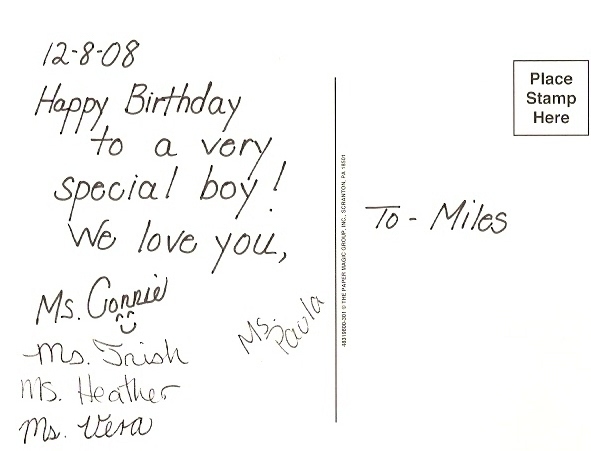 12-8-08
Happy Birthday
to a very
special boy!
We love you,
Ms. Connie
Ms. Trish
Ms. Heather
Ms. Vera
Ms. Paula
48318800-301 © THE PAPER MAGIC GROUP, INC., SCRANTON, PA 18501
Place
Stamp
Here
To - Miles